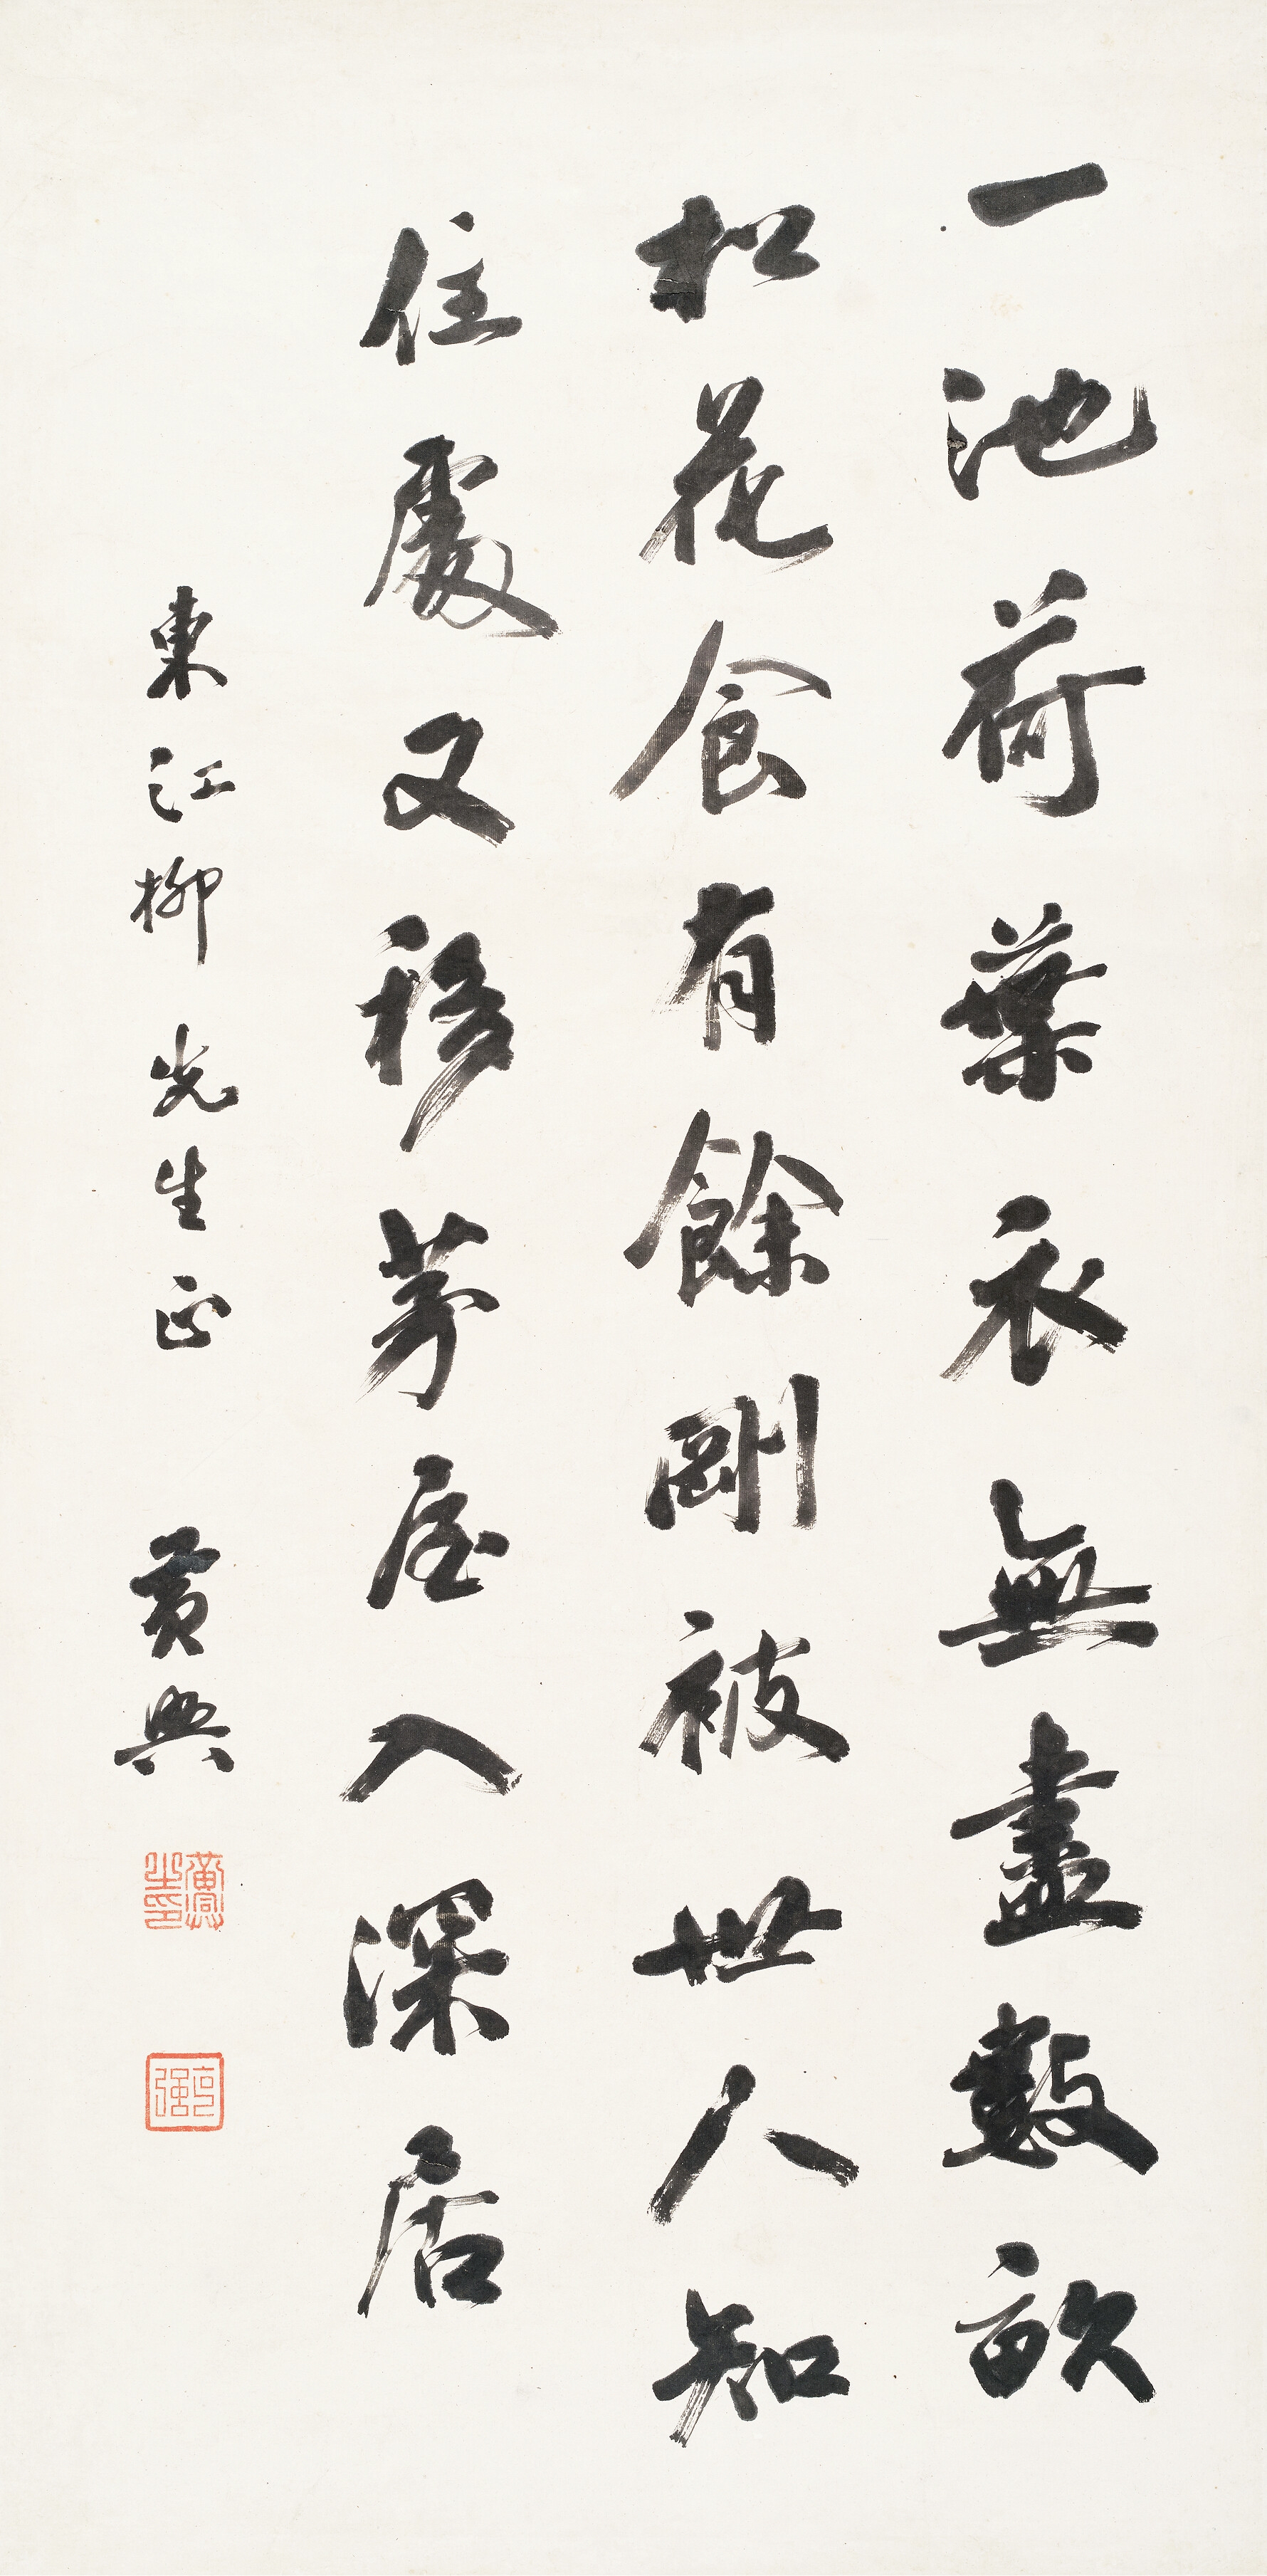 一池荷葉衣無盡數畝
松花食有餘剛被世人知
住處又移茅屋入深居
東江柳先生正 黃興
黃興之印